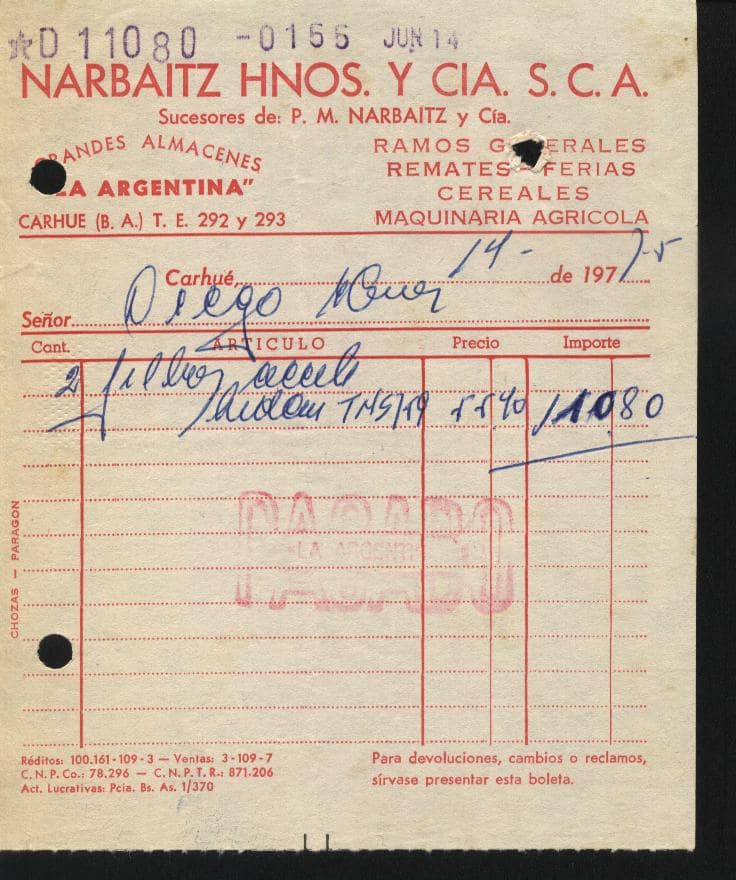 ☆D 11080 -0166 JUN 14
NARBAITZ HNOS. Y CIA. S. C. A.
Sucesores de: P. M. NARBAITZ y Cía.
GRANDES ALMACENES
"LA ARGENTINA"
CARHUE (B. A.) T. E. 292 y 293
RAMOS GENERALES
REMATES - FERIAS
CEREALES
MAQUINARIA AGRICOLA
Carhué, 14- de 197
Señor Diego
Cant. ARTICULO Precio Importe
2
5540 11080
PAGADO
LA ARGENTINA
CHOZAS — PARAGON
Réditos: 100.161-109-3 — Ventas: 3-109-7
C. N. P. Co.: 78.296 — C. N. P. T. R.: 871.206
Act. Lucrativas: Pcia. Bs. As. 1/370
Para devoluciones, cambios o reclamos,
sírvase presentar esta boleta.